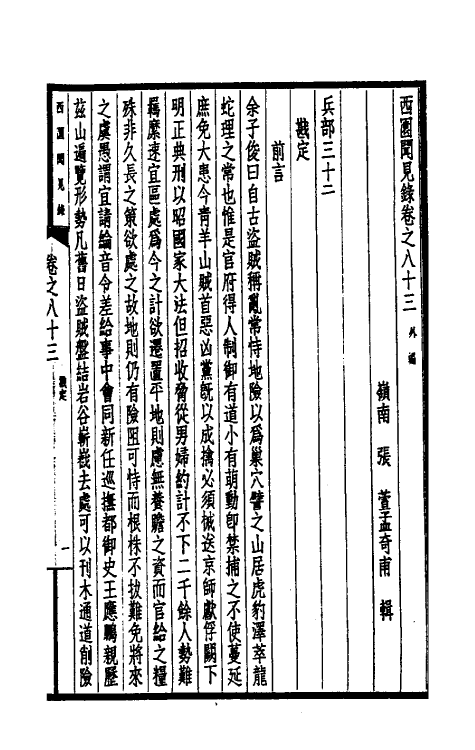 西園聞見錄卷之八十三 外編
嶺南 張 萱孟奇甫 輯
兵部三十二
戡定
前言
余子俊曰自古盜賊稱亂常恃地險以爲巢穴譬之山居虎豹澤萃龍
蛇理之常也惟是官府得人制御有道小有萌動卽禁捕之不使蔓延
庶免大患今靑羊山賊首惡凶黨旣以成擒必須械送京師獻俘闕下
明正典刑以昭國家大法但招收脅從男婦約計不下二千餘人勢難
羈縻速宜區處爲今之計欲遷置平地則慮無養贍之資而官給之糧
殊非久長之策欲處之故地則仍有險阻可恃而根株不拔難免將來
之虞愚謂宜請綸音令差給事中會同新任巡撫都御史王應鵬親歷
茲山遍覽形勢凡舊日盜賊盤結岩谷嶄嶻去處可以刊木通道削險
西園聞見錄
卷之八十三
戡定
一